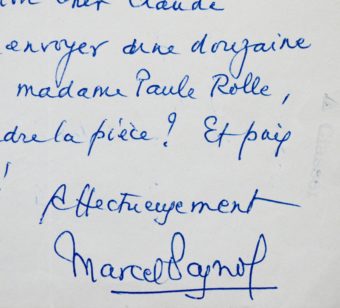 cher Claude
envoyer une douzaine
madame Paule Rolle,
dre la pièce ? Et puis
!
Affectueusement
Marcel Pagnol